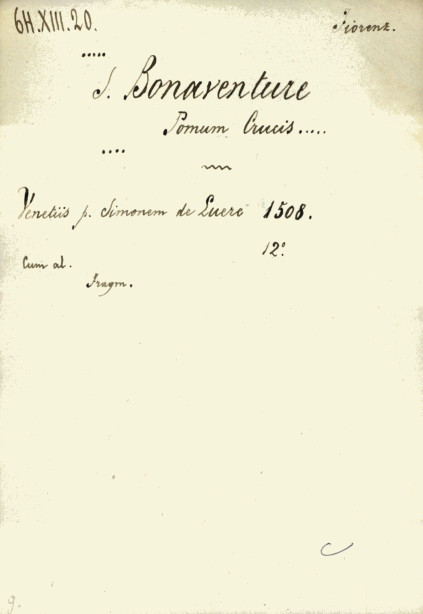 6H.XIII.20. Fiorenz.
.....
S. Bonaventure
Pomum Crucis.....
....
Venetiis p. Simonem de Luere 1508.
12°.
Cum al.
Fragm.
g.